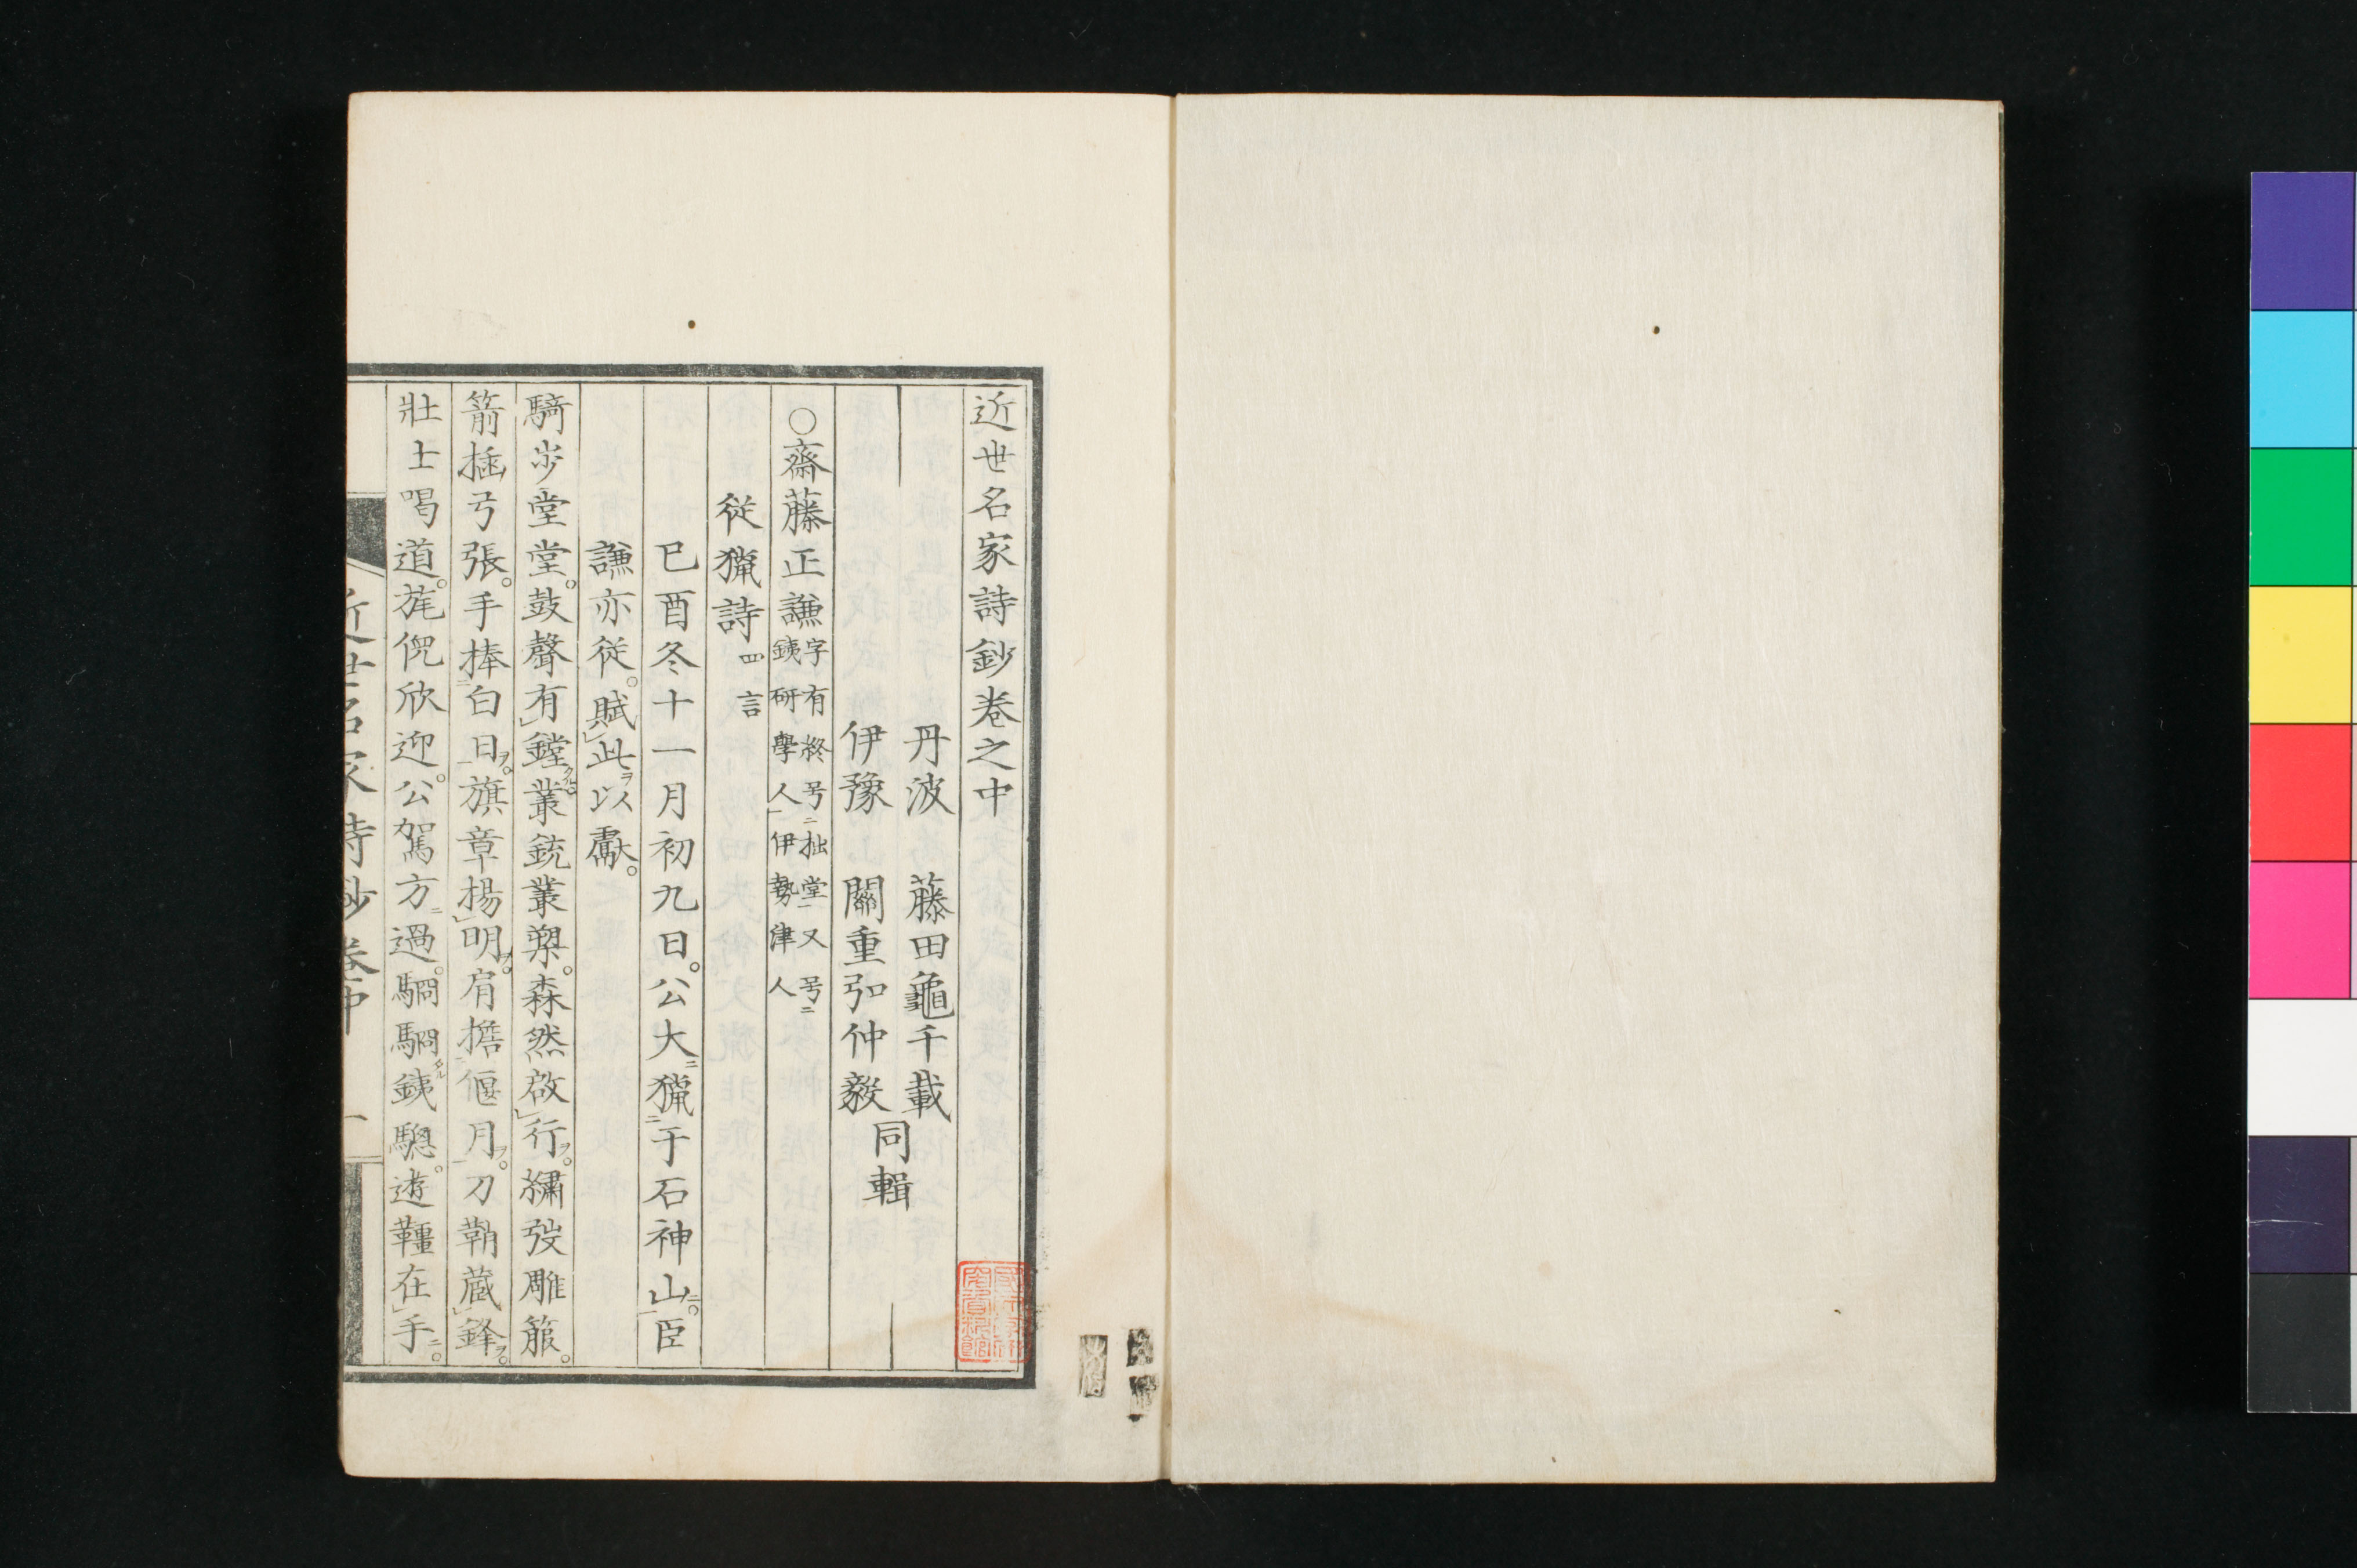 近世名家詩鈔卷之中
丹波 藤田龜千載
伊豫 關重弘仲毅
同輯
○齋藤正謙字有終号拙堂又号
鐵研學人伊勢津人
従獵詩四言
已酉冬十一月初九日。公大獵于石神山。臣
謙亦従。賦此以獻。
騎步堂堂。鼓聲有鏜。叢銃叢槊。森然啟行。繡弢雕箙。
箭插弓張。手捧白日。旗章楊明。肩擔偃月。刀鞘蔵鋒。
壯士喝道。旄倪欣迎。公駕方過。駉駉鐵驄。遊韁在手。
近世名家詩鈔 卷中 一